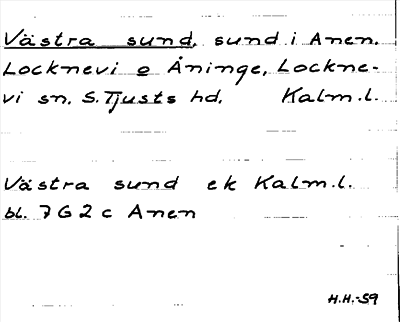 Västra sund, sund i Anen.
Locknevi o Åninge, Lockne-
vi sn. S. Tjusts hd. Kalm.l.
Västra sund ek Kalm.l.
bl. 7 G 2 c Anen
H.H.-59